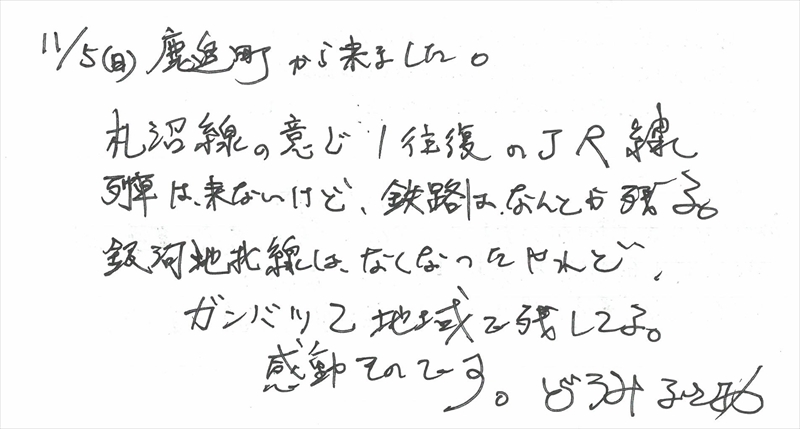 11/5(日) 鹿追町から来ました。
札沼線の 1往復のJR
列車は、来ないけど、鉄路は、なんとか残る。
銀河 線は、なくなったけれど、
ガンバッて地域で残してる。
感動ものです。